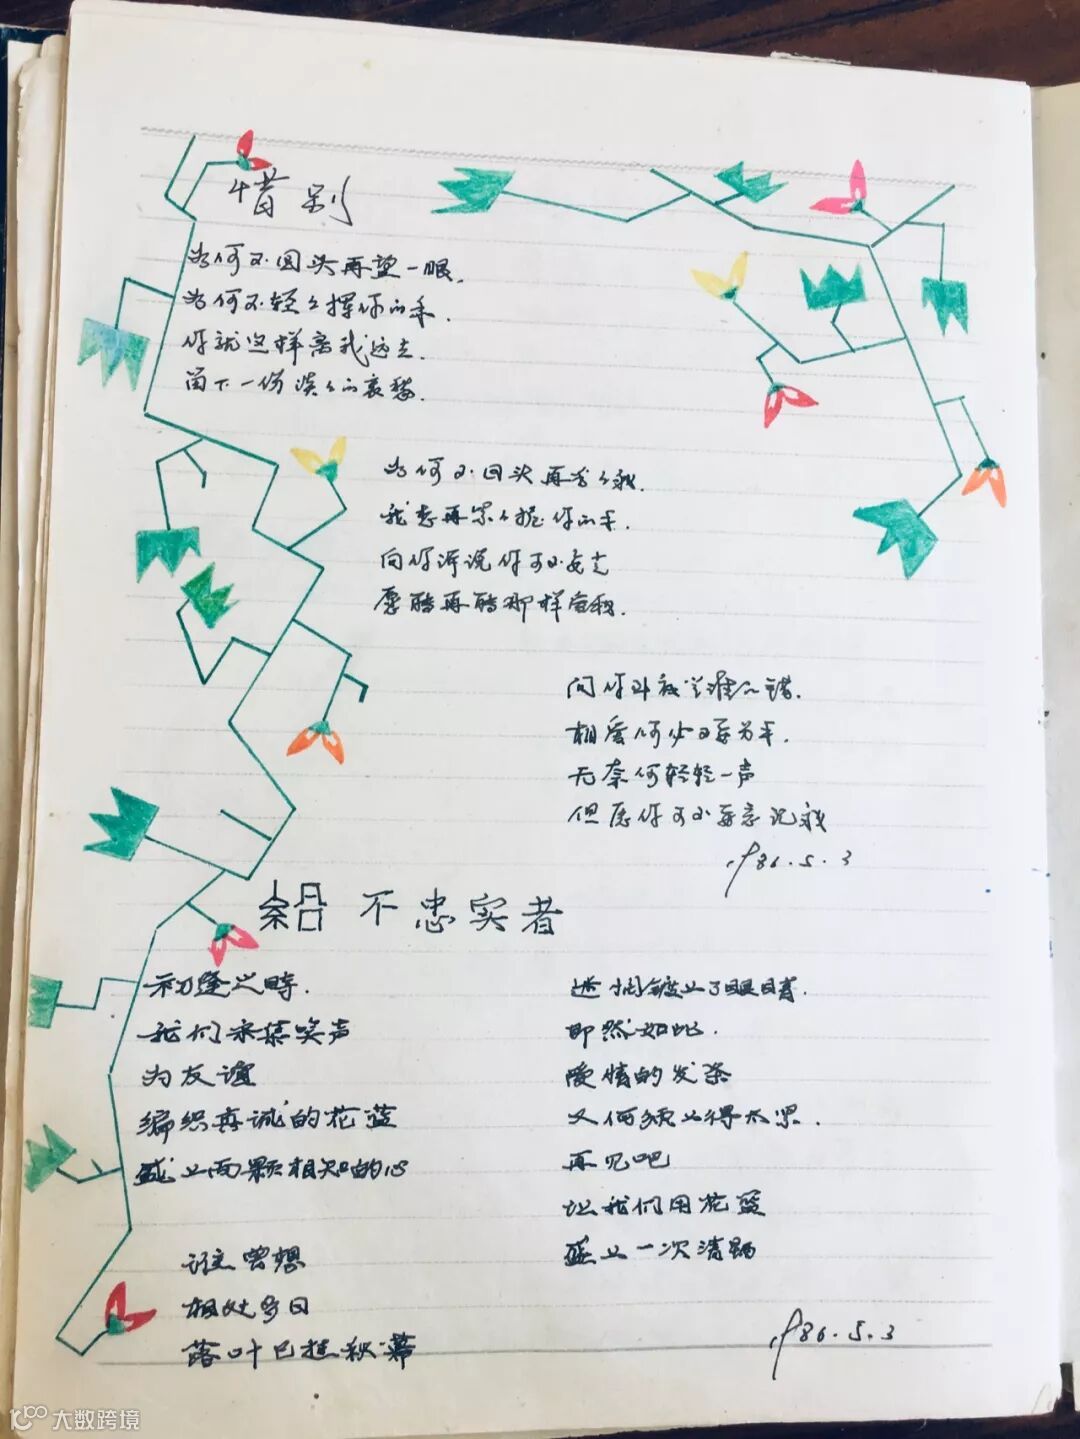 惜别
为何不回头再望一眼.
为何不轻轻挥你的手.
你就这样离我远去.
留下一份淡淡的哀愁.
为何不回头再看看我.
我想再紧紧握你的手.
向你诉说你可不要走
问你我是谁的错.
相爱何必要分手.
无奈何轻轻一声
但愿你可不要忘记我
1986.5.3
给不忠实者
初逢之時.
我们采集笑声
为友谊
编织真诚的花蓝
盛上两颗相知的心
谁曾想
相处多日
落叶已挂秋幕
迷惘镀上了眼睛.
即然如此.
爱情的发条
又何须上得太紧.
再见吧
让我们用花篮
盛上一次清醒
1986.5.3
大数跨境